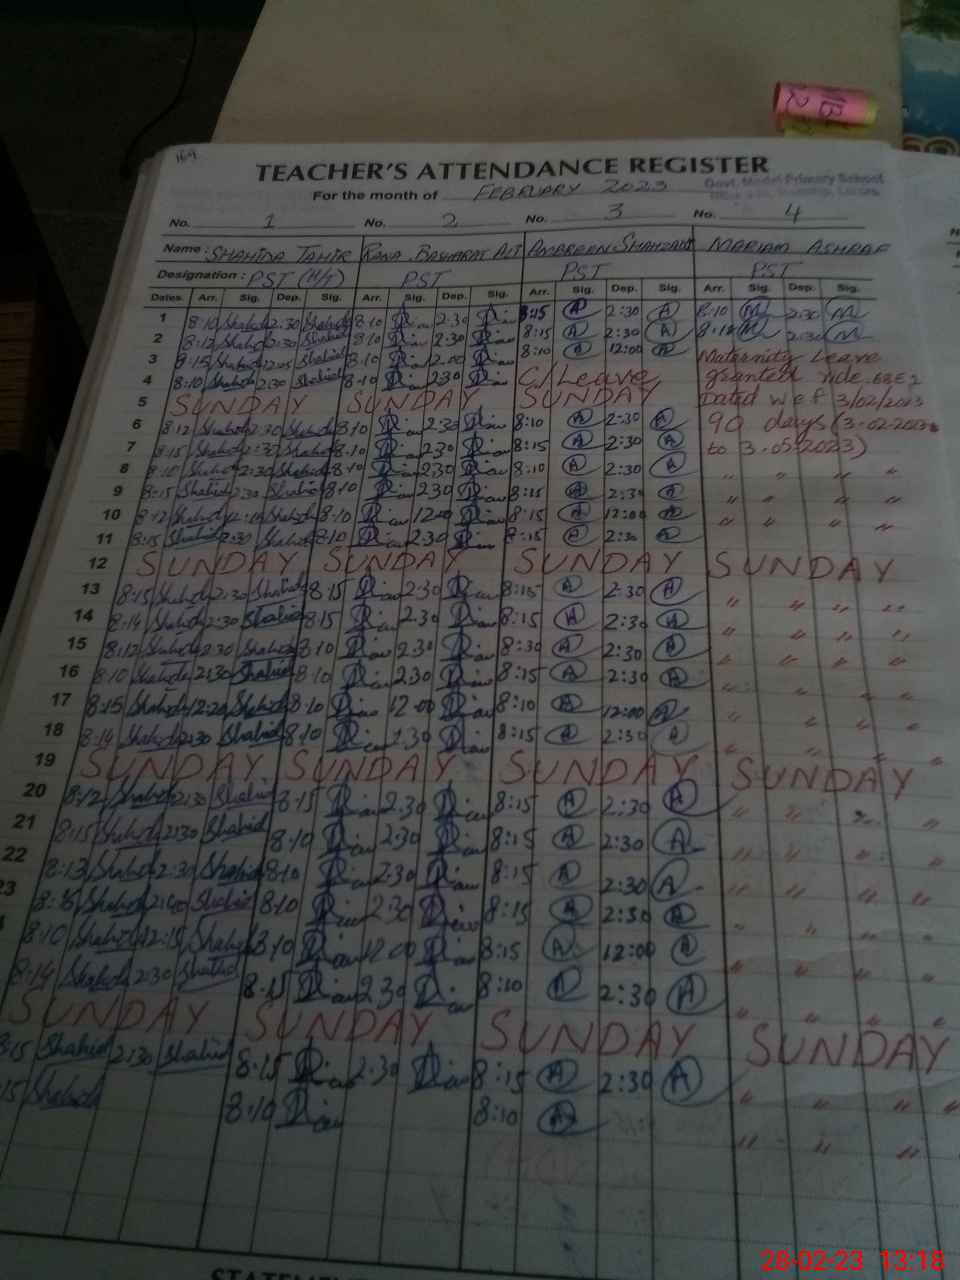 169
TEACHER'S ATTENDANCE REGISTER
For the month of FEBRUARY 2023
Govt. Model Primary School
No. 1 No. 2 No. 3 No. 4
Name: SHAHIDA TAHIR RANA BASHARAT ALI AMBREEN SHAHZADI MARIAM ASHRAF
Designation: PST (H/T) PST PST PST
Dates. Arr. Sig. Dep. Sig. Arr. Sig. Dep. Sig. Arr. Sig. Dep. Sig. Arr. Sig. Dep. Sig.
1 8:10 Shahida 2:30 Shahida 8:10 2:30 8:15 A 2:30 A 8:10 M 2:30 M
2 8:12 Shahida 2:30 Shahida 8:10 2:30 8:15 A 2:30 A 8:10 M 2:30 M
3 8:15 Shahida 12:05 Shahida 8:10 12:00 8:10 A 12:00 A Maternity Leave
4 8:10 Shahida 2:30 Shahida 8:10 2:30 C/Leave granted vide
5 SUNDAY SUNDAY SUNDAY Dated w e f 3/02/2023
6 8:12 Shahida 2:30 Shahida 8:10 2:30 8:10 A 2:30 A 90 days (3-02-2023
7 8:15 Shahida 2:30 Shahida 8:10 2:30 8:15 A 2:30 A to 3.05.2023)
8 8:10 Shahida 2:30 Shahida 8:10 2:30 8:10 A 2:30 A " " " "
9 8:15 Shahida 2:30 Shahida 8:10 2:30 8:15 A 2:30 A " " " "
10 8:12 Shahida 12:10 Shahida 8:10 12:00 8:15 A 12:00 A " " "
11 8:15 Shahida 2:30 Shahida 8:10 2:30 8:15 A 2:30 A
12 SUNDAY SUNDAY SUNDAY SUNDAY
13 8:15 Shahida 2:30 Shahida 8:15 2:30 8:15 A 2:30 A " " " "
14 8:14 Shahida 2:30 Shahida 8:15 2:30 8:15 A 2:30 A " " " "
15 8:12 Shahida 2:30 Shahida 8:10 2:30 8:30 A 2:30 A " " " "
16 8:10 Shahida 2:30 Shahida 8:10 2:30 8:15 A 2:30 A " " " "
17 8:15 Shahida 12:20 Shahida 8:10 12:00 8:10 A 12:00 A " " " "
18 8:14 Shahida 2:30 Shahida 8:10 2:30 8:15 A 2:30 A " " " "
19 SUNDAY SUNDAY SUNDAY SUNDAY
20 8:12 Shahida 2:30 Shahida 8:15 2:30 8:15 A 2:30 A " " " "
21 8:15 Shahida 2:30 Shahida 8:10 2:30 8:15 A 2:30 A " " " "
22 8:13 Shahida 2:30 Shahida 8:10 2:30 8:15 A 2:30 A " " " "
23 Shahida Shahida 8:10 2:30 8:15 A 2:30 A " " " "
8:10 Shahida 12:15 Shahida 8:10 12:00 8:15 A 12:00 A " " " "
8:14 Shahida 2:30 Shahida 8:15 2:30 8:10 A 2:30 A " " " "
SUNDAY SUNDAY SUNDAY SUNDAY
8:15 Shahida 2:30 Shahida 8:15 2:30 8:15 A 2:30 A " " " "
:15 Shahida 8:10 8:10 A " " " "
28-02-23 13:18